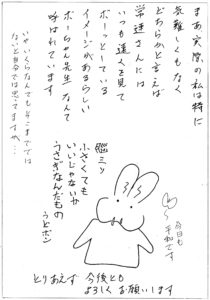 まあ実際の私は特に
気難しくもなく
どちらかと言えば
常連さんには
いつも遠くを見て
ボーッとしている
イメージがあるらしい
ボーちゃん先生なんて
呼ばれています
いやいくらなんでもそこまででは
ないと自分では思ってますが
脳ミソ
小さくても
いいじゃないか
うさぎなんだもの
うどポン
今日も
平和です
とりあえず 今後とも
よろしくお願いします